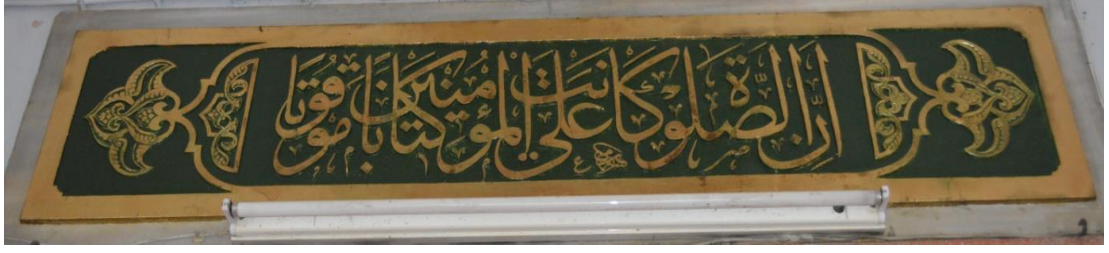 إِنَّ الصَّلَوٰةَ كَانَتْ عَلَى الْمُؤْمِنِينَ كِتَابًا مَوْقُوتًا